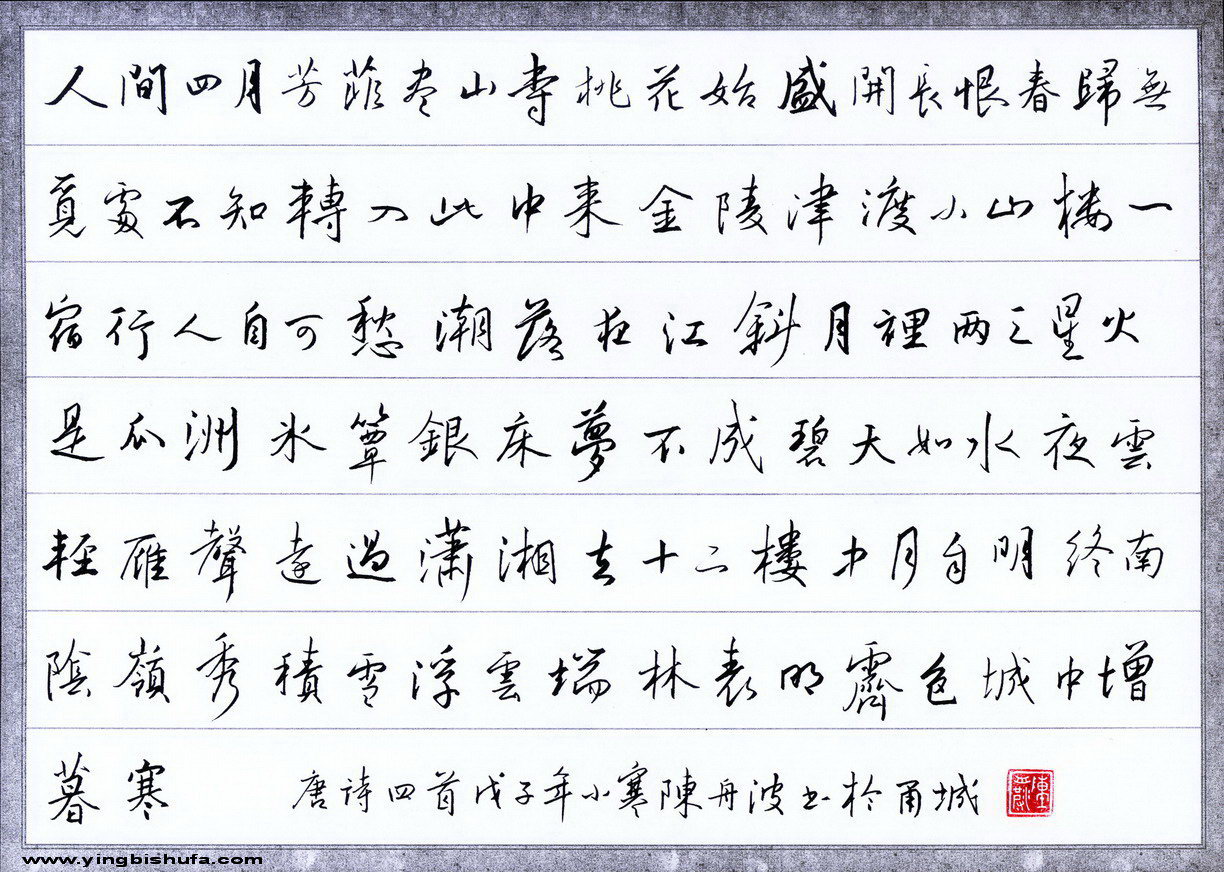 人間四月芳菲尽山寺桃花始盛開長恨春歸無
覓處不知轉入此中来金陵津渡小山楼一
宿行人自可愁潮落夜江斜月裡两三星火
是瓜洲冰簟銀床夢不成碧天如水夜雲
輕雁聲遠過瀟湘去十二楼中月自明終南
陰嶺秀積雪浮雲端林表明霽色城中增
暮寒 唐詩四首戊子年小寒陳舟波书於甬城
www.yingbishufa.com